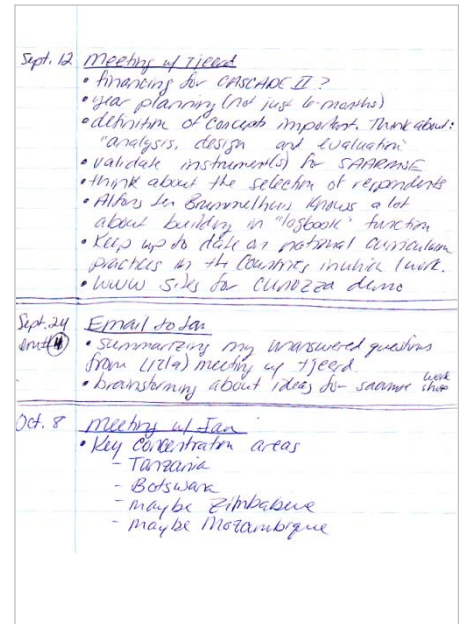 Sept. 12 Meeting w/ Tjeerd
• financing for CASCADE II ?
• year planning (not just 6-months)
• definition of concepts important. Think about:
"analysis, design and evaluation"
• validate instrument(s) for SAARMSE
• think about the selection of respondents
• Alfons ten Brummelhuis knows a lot
about building in "logbook" function
• Keep up to date on national curriculum
practices in the countries in which I work.
• WWW sites for demo
Sept. 24 Email to Jan
• summarizing my unanswered questions
from meeting w/ Tjeerd.
• brainstorming about ideas for saarmse work
shop
Oct. 8 Meeting w/ Jan
• Key concentration areas
- Tanzania
- Botswana
- maybe Zimbabwe
- maybe Mozambique